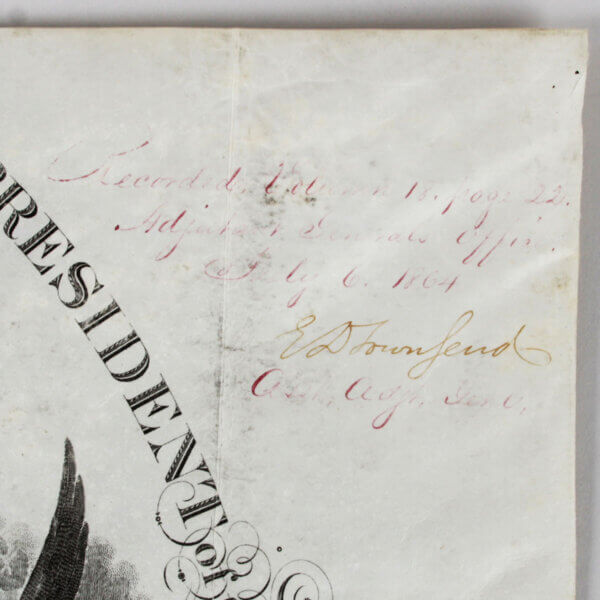 Recorded, Volume 18. page 22.
Adjutant Generals Office.
July 6. 1864
E D Townsend
Asst. Adjt. Genl.
PRESIDENT of